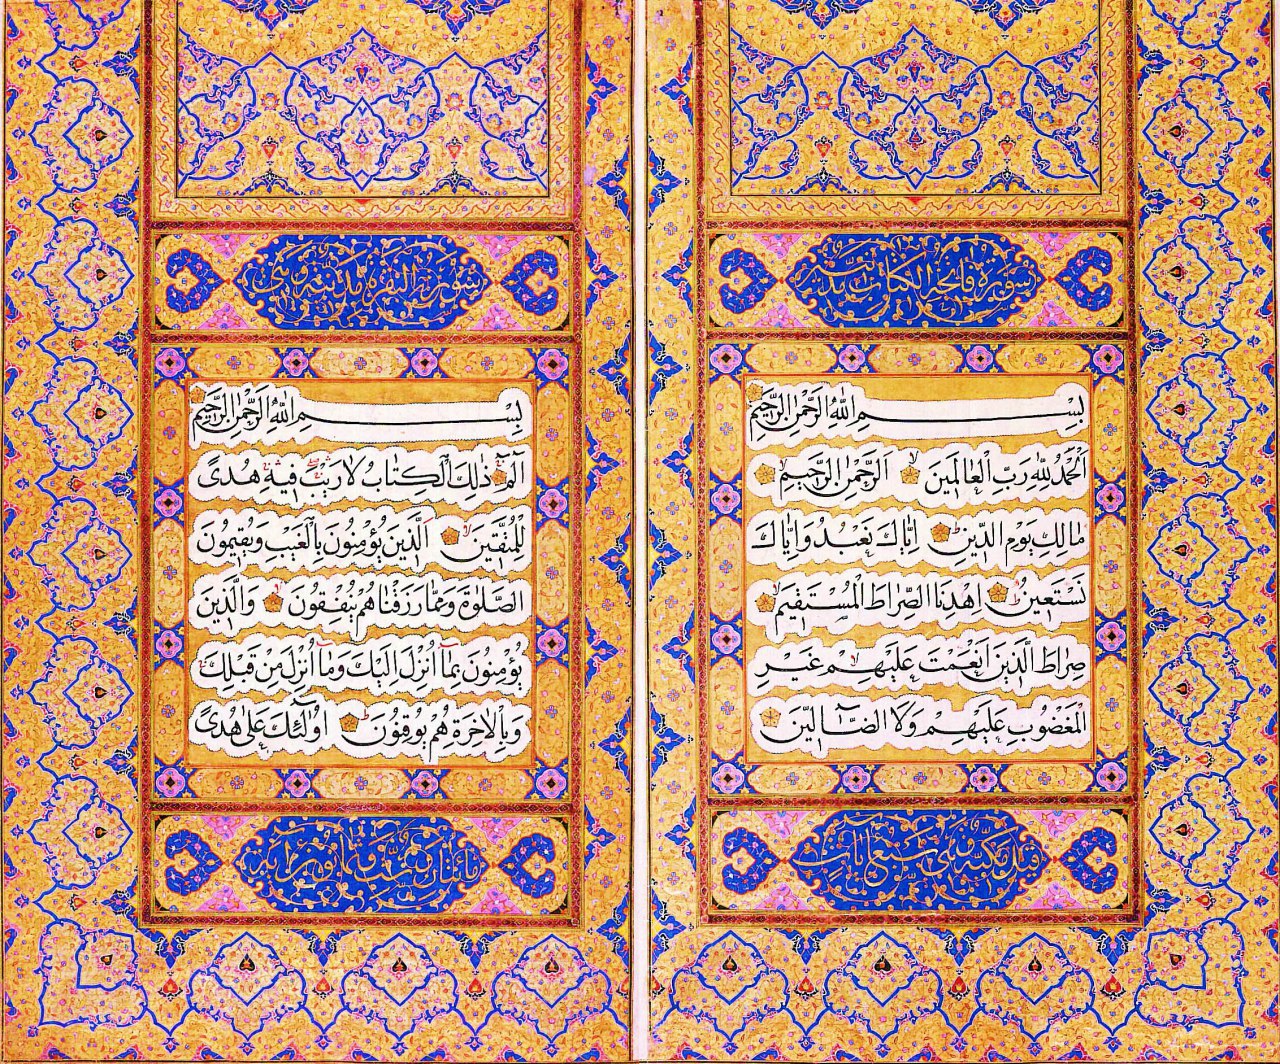 سورة فاتحة الكتاب مدنية
بِسْمِ اللّٰهِ الرَّحْمٰنِ الرَّحِيمِ
اَلْحَمْدُ لِلّٰهِ رَبِّ الْعَالَمِينَ اَلرَّحْمٰنِ الرَّحِيمِ
مَالِكِ يَوْمِ الدِّينِ اِيَّاكَ نَعْبُدُ وَاِيَّاكَ
نَسْتَعِينُ اِهْدِنَا الصِّرَاطَ الْمُسْتَقِيمَ
صِرَاطَ الَّذِينَ اَنْعَمْتَ عَلَيْهِمْ غَيْرِ
الْمَغْضُوبِ عَلَيْهِمْ وَلَا الضَّآلِّينَ
قيل مكية وهى سبع ايات
سورة البقرة مدنية وهى
بِسْمِ اللّٰهِ الرَّحْمٰنِ الرَّحِيمِ
الٓمٓ ذٰلِكَ الْكِتَابُ لَا رَيْبَ فِيهِ هُدًى
لِلْمُتَّقِينَ اَلَّذِينَ يُؤْمِنُونَ بِالْغَيْبِ وَيُقِيمُونَ
الصَّلٰوةَ وَمِمَّا رَزَقْنَاهُمْ يُنْفِقُونَ وَالَّذِينَ
يُؤْمِنُونَ بِمَآ اُنْزِلَ اِلَيْكَ وَمَآ اُنْزِلَ مِنْ قَبْلِكَ
وَبِالْاٰخِرَةِ هُمْ يُوقِنُونَ اُولٰٓئِكَ عَلٰى هُدًى
مائتان وثمانون